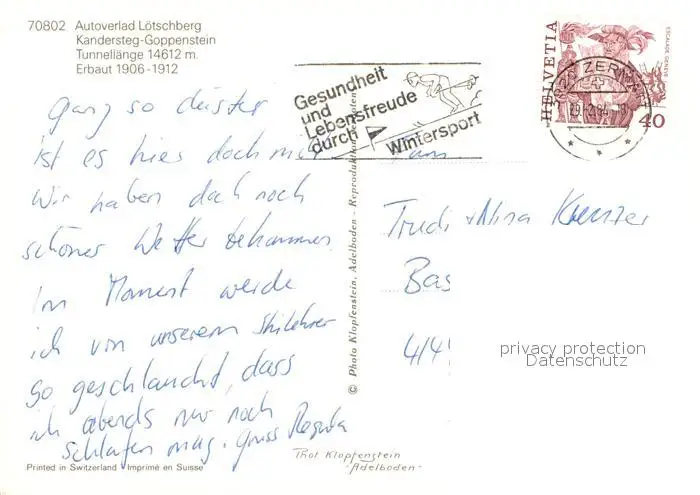 70802 Autoverlad Lötschberg
Kandersteg-Goppenstein
Tunnellänge 14612 m.
Erbaut 1906-1912
Gesundheit
und
Lebensfreude
durch
Wintersport
HELVETIA
ESCALADE GENÈVE
40
ganz so düster
ist es hier doch nicht
Wir haben doch noch
schönes Wetter bekommen.
Im Moment werde
ich von unserem Skilehrer
so geschlaucht, dass
ich abends nur noch
schlafen mag. Gruss Regula
Fam.
Trudi + Nina
Bas
414
privacy protection
Datenschutz
© Photo Klopfenstein, Adelboden - Reproduktion verboten
Phot Klopfenstein
-Adelboden-
Printed in Switzerland - Imprimé en Suisse